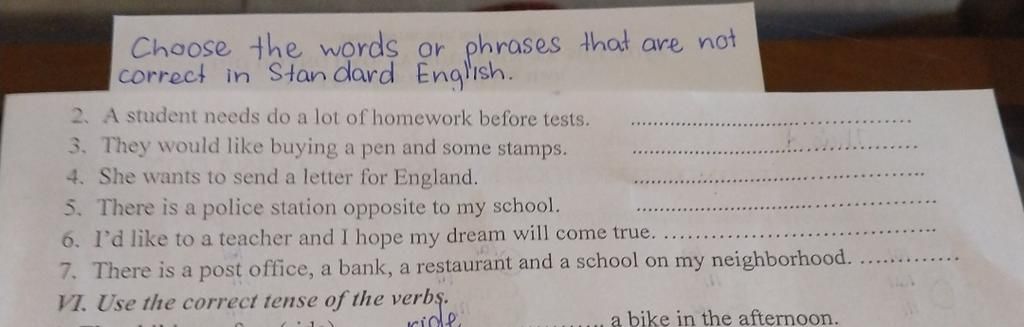 Choose the words or phrases that are not
correct in Standard English.
2. A student needs do a lot of homework before tests. ..............................
3. They would like buying a pen and some stamps. ..............................
4. She wants to send a letter for England. ..............................
5. There is a police station opposite to my school. ..............................
6. I'd like to a teacher and I hope my dream will come true. ..............................
7. There is a post office, a bank, a restaurant and a school on my neighborhood. .............
VI. Use the correct tense of the verbs.
ride ........ a bike in the afternoon.